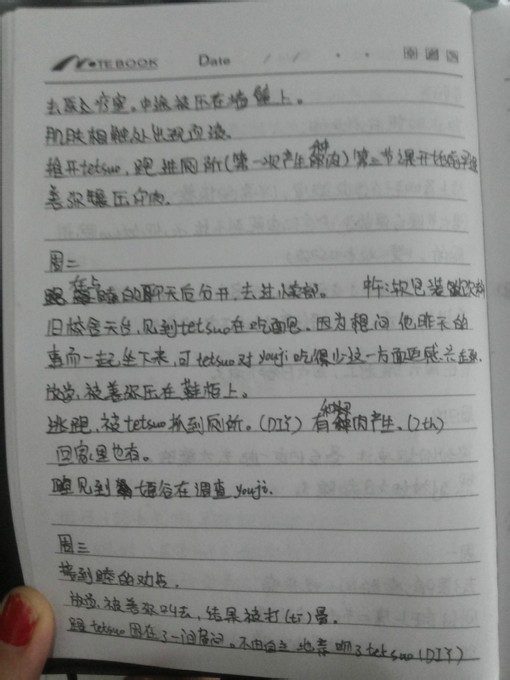 NOTEBOOK Date / / · ·
去医务室,中途被压在墙壁上。
肌肤相触处出现血渍。
推开tetsuo,跑进厕所(第一次产生肉)第二节课开始后
美弥压
周二
在与睦的聊天后分开,去过小卖部。 牛:软包装饮料
旧校舍天台,见到tetsuo在吃面包。因为想问他昨天的
事而一起坐下来,可tetsuo对youji吃得少这一方面更感兴趣。
放学,被美弥压在鞋柜上。
逃跑,被tetsuo抓到厕所。(DIY) 有肉产生。(2th)
回家里也有。
见到城谷在调查youji.
周三
接到睦的劝告。
放学,被美弥叫去,结果被打(tī)晕。
跟tetsuo困在了一间房间。不由自主地吻了tetsuo(DIY)